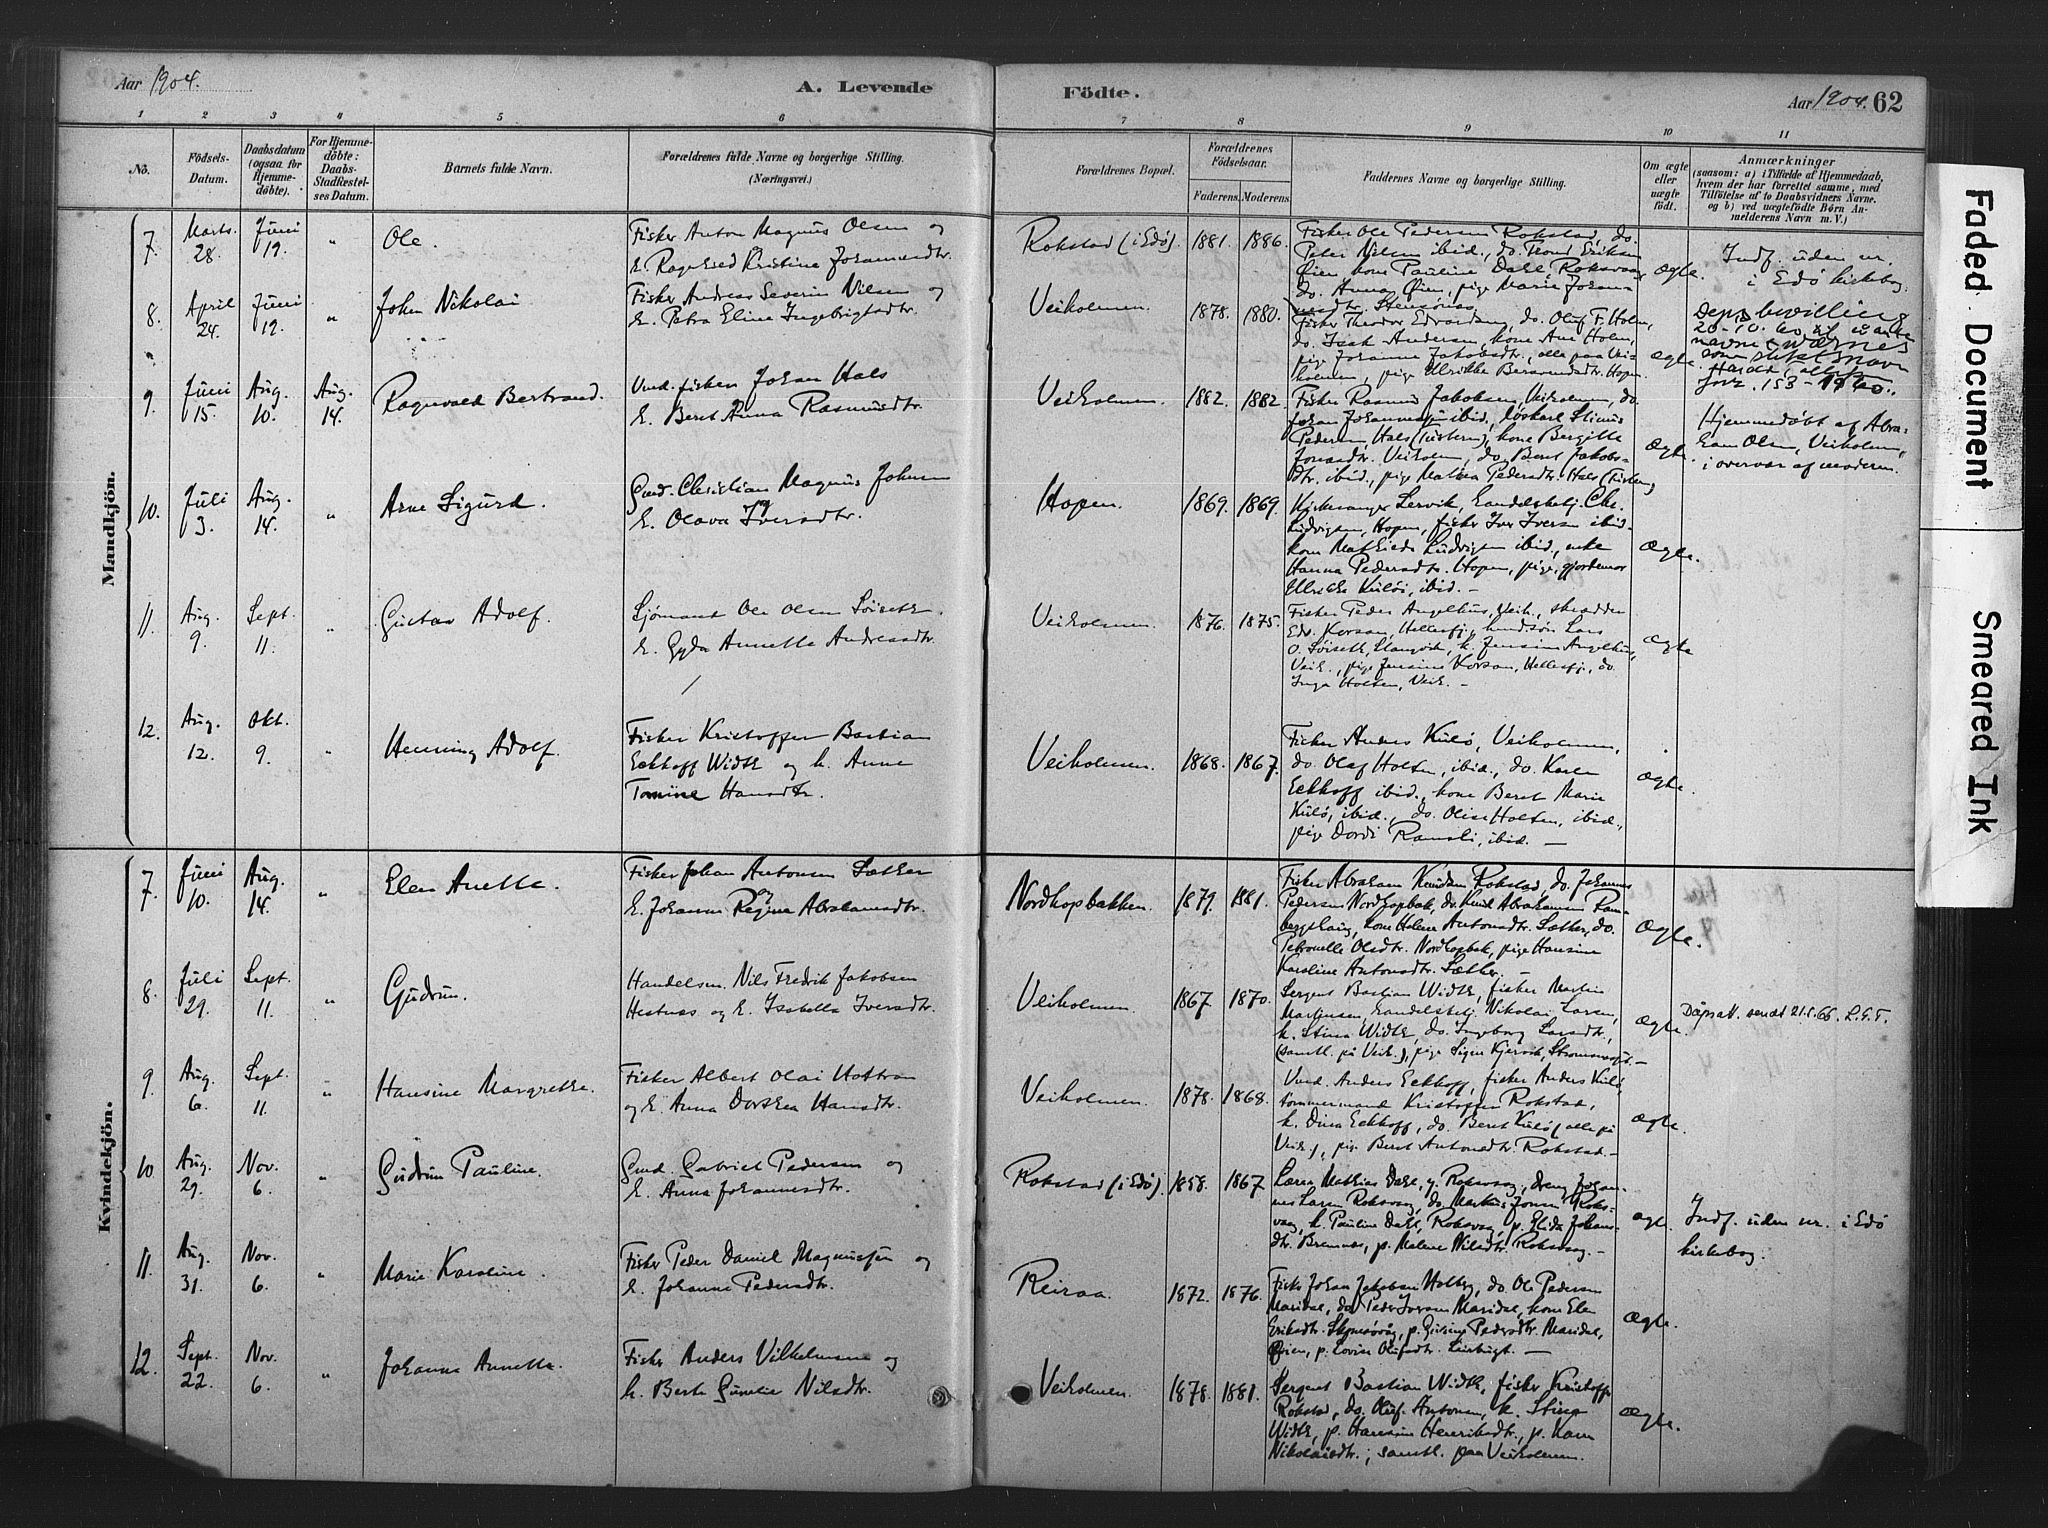 Aar 1904.
A. Levende
Födte.
Aar 1904. 62
1 2 3 4 5 6 7 8 9 10 11
No.
Födsels-Datum.
Daabsdatum (ogsaa for Hjemmedöbte).
For Hjemmedöbte: Daabs-Stadfæstelses Datum.
Barnets fulde Navn.
Forældrenes fulde Navne og borgerlige Stilling. (Næringsvei.)
Forældrenes Bopæl.
Forældrenes Födselsaar.
Faderens. Moderens.
Faddernes Navne og borgerlige Stilling.
Om ægte eller uægte födt.
Anmærkninger
(saasom: a) i Tilfælde af Hjemmedaab, hvem der har forrettet samme, med Tilföielse af to Daabsvidners Navne. og b) ved uægtefödte Börn Anmelderens Navn m. V.)
Mandkjön.
7. Marts 28. Juni 19. " Ole.
Fisker Anton Magnus Olsen og
h. Ragnhild Kristine Johannesdtr.
Rokstad (i Edö). 1881. 1886.
Fisker Ole Pedersen Rokstad, do.
Peter Nilsen ibid., do. Trond Eriksen
Øien, kone Pauline Dahl, Roksvaag,
do. Anna Øien, pige Marie Johannesdtr.
ægte.
Indf. uden nr.
i Edö kirkebog.
8. April 24. Juni 19. " John Nikolai
Fisker Andreas Severin Nilsen og
h. Petra Eline Ingebrigtsdtr.
Veiholmen. 1878. 1880.
Fisker Theodor Edvardsen, do. Oluf F. Holm,
do. Isak Andersen, kone Ane Holm,
pige Johanna Jakobsdtr., alle paa Veiholmen, pige Ulrikke Hopen.
ægte.
Dep.s bevilling
20-10.60 til
navnet Wærnes
som slektsnavn
jour. 153-1960.
9. Juni 15. Aug. 10. Aug. 14. Ragnvald Bertrand.
Und. fisker Johan Hals
h. Beret Anna Rasmusdtr.
Veiholmen. 1882. 1882.
Fisker Rasmus Jakobsen, Veiholmen, do.
Johan Johannesen ibid., löskarl Stinus
Pedersen, Hals (Tustern), kone Bergitte
Jonasdtr. Veiholm, do. Beret Jakobsdtr. ibid., pige Malena Pedersdtr. Hals (Tustern)
ægte.
Hjemmedöbt af Abraham Olsen, Veiholmen,
i overvær af moderen.
10. Juli 3. Aug. 14. " Arne Sigurd.
Gmd. Christian Magnus Johnsen
h. Olava Iversdtr.
Hopen. 1869. 1869.
Kirkesanger Lervik, handelsbetj. Chr.
Ludvigsen, Hopen, fisker Iver Iversen ibid.
kone Mathilde Ludvigsen ibid., enke
Hanna Pedersdtr. Hopen, pige, gjordemor
Ulrikke Kulöi, ibid. –
ægte.
11. Aug. 9. Sept. 11. " Gustav Adolf.
Sjömand Ole Olsen Söiseth.
h. Gyda Annette Andreasdtr.
Veiholmen. 1876. 1875.
Fisker Peder Angelhus, Veih., skrædder
Edv. Korsan, Hellesfj., Lars
O. Söiseth, k. Jensine Angelhus,
Veih., pige Jensine Korsan, Hellesfj., do.
Inga Holten, Veih. –
ægte
12. Aug. 12. Okt. 9. " Henning Adolf.
Fisker Kristoffer Bastian
Eckhoff Width og h. Anne
Tomine Hansdtr.
Veiholmen. 1868. 1867.
Fisker Anders Kulö, Veiholmen,
do. Olaf Holten, ibid., do. Karl
Eckhoff ibid., kone Beret Marie
Kulö, ibid., do. Olise Holten, ibid.,
pige Dordi Ramsli, ibid. –
ægte.
Kvindekjön.
7. Juni 10. Aug. 14. " Elen Anette.
Fisker Johan Antonsen Sæther
h. Johanne Regine Abrahamsdtr.
Nordhopbakken. 1879. 1881.
Fisker Abraham Knudsen Rokstad, do. Johannes
Pedersen Nordhopbak, do. Knut Abrahamsen
kone Helene Antonsdtr. Sæther, do.
Petronelle Olsdtr. Nordhopbak, pige Hansine
Karoline Antonsdtr. Sæther. –
ægte.
8. Juli 29. Sept. 11. " Gudrun.
Handelsm. Nils Fredrik Jakobsen
Hestnes og h. Isabella Iversdtr.
Veiholmen. 1867. 1870.
Sergent Bastian Width, fisker Martin
Martinsen, handelsbetj. Nikolai Larsen,
k. Stina Width, do. Ingeborg Larsdtr.,
(samtl. på Veih.), pige Signe Kjervik,
ægte.
Dåpsatt. sendt 21.1.66. L.G.T.
9. Aug. 6. Sept. 11. " Hansine Margrethe.
Fisker Albert Olai Hottran
og h. Anna Dorthea Hansdtr.
Veiholmen. 1878. 1868.
Und. Anders Eckhoff, fisker Anders Kulö,
tömmermand Kristoffer Rokstad,
k. Dina Eckhoff, do. Beret Kulö (alle på
Veih.), pige Beret Antonsdtr. Rokstad. –
ægte.
10 Aug. 29. Nov. 6. " Gudrun Pauline.
Gmd. Gabriel Pedersen og
h. Anna Johannesdtr.
Rokstad (i Edö). 1858. 1867.
Lærer Mathias Dahl, g. Roksvaag, dreng Johannes Larsen Roksvaag, do. Markus Jonsen Roksvaag, k. Pauline Dahl, Roksvaag, p. Elida Johansdtr. Bremnes, p. Malene Nilsdtr. Roksvaag. –
ægte.
Indf. uden nr. i Edö
kirkebog.
11. Aug. 31. Nov. 6. " Marie Karoline.
Fisker Peder Daniel Magnussen og
h. Johanne Pedersdtr.
Reiraa. 1872. 1876.
Fisker Johan Jakobsen do. Ole Pedersen
Maridal, do. Peder Iversen Maridal, kone Elen
Eriksdtr. p. Gurine Pedersdtr. Maridal,
Øien, p. Lovise Olufsdtr. –
ægte.
12. Sept. 22. Nov. 6. " Johanna Annette.
Fisker Anders Vilhelmsen og
h. Berit Gurelie Nilsdtr.
Veiholmen. 1878. 1881.
Sergent Bastian Width, fisker Kristoffer
Rokstad, do. Oluf Antonsen, k. Stina
Width, p. Hansine Henriksdtr., p. Karen
Nikolaisdtr., samtl. paa Veiholmen.
ægte.
Faded Document
Smeared Ink